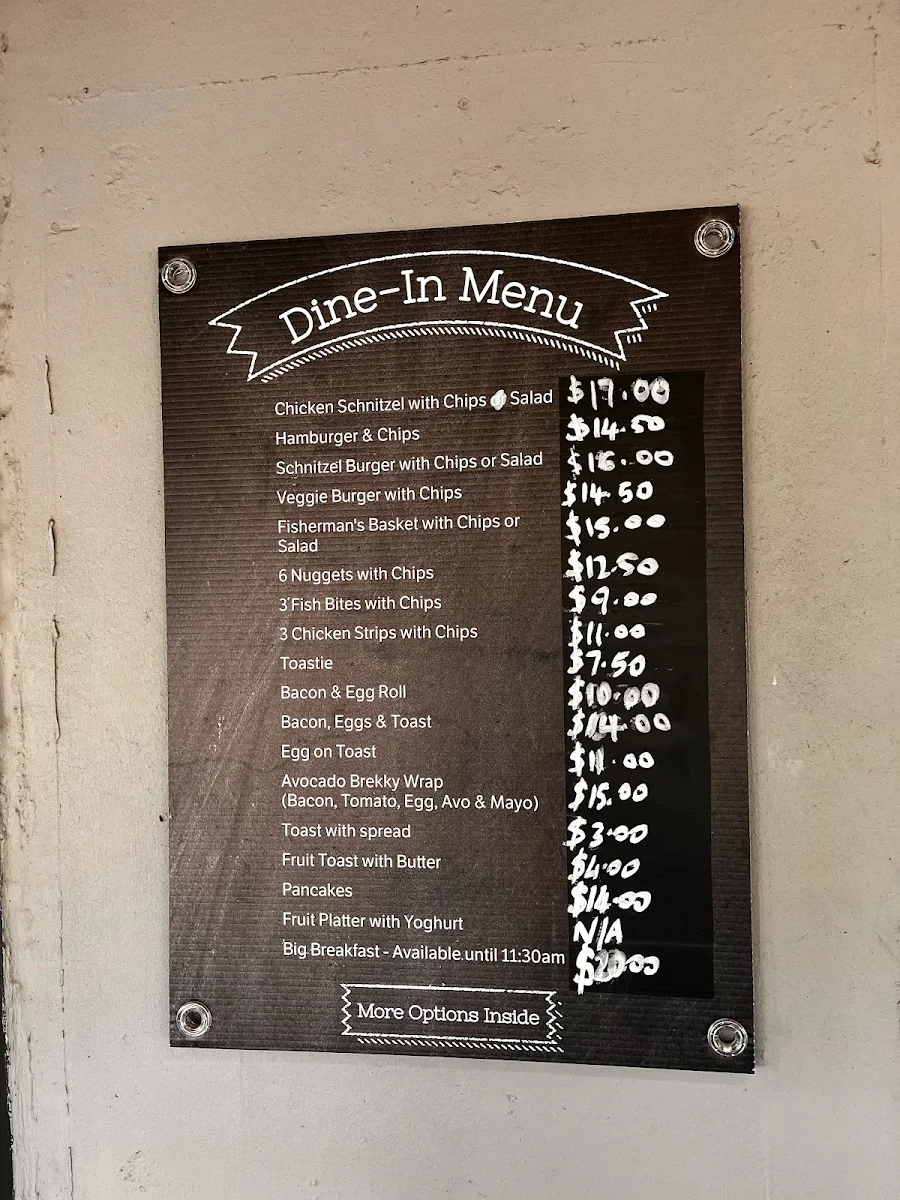 Dine-In Menu
Chicken Schnitzel with Chips Salad $17.00
Hamburger & Chips $14.50
Schnitzel Burger with Chips or Salad $16.00
Veggie Burger with Chips $14.50
Fisherman's Basket with Chips or $15.00
Salad
6 Nuggets with Chips $12.50
3 Fish Bites with Chips $9.00
3 Chicken Strips with Chips $11.00
Toastie $7.50
Bacon & Egg Roll $10.00
Bacon, Eggs & Toast $14.00
Egg on Toast $11.00
Avocado Brekky Wrap $15.00
(Bacon, Tomato, Egg, Avo & Mayo)
Toast with spread $3.00
Fruit Toast with Butter $4.00
Pancakes $14.00
Fruit Platter with Yoghurt N/A
Big Breakfast - Available until 11:30am $20.00
More Options Inside